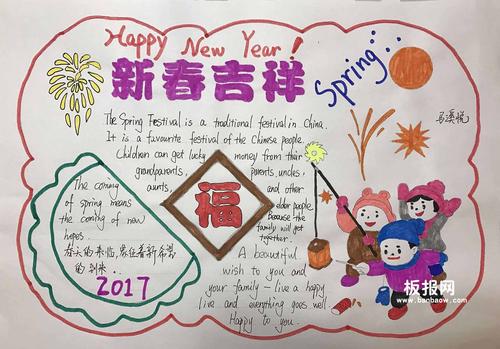 Happy New Year!
新春吉祥
Spring
马溪悦
The Spring Festival is a traditional festival in China.
It is a favourite festival of the Chinese people.
Children can get lucky money from their
grandparents, parents, uncles,
aunts, and other
elder people.
Because the
family will get
together.
福
The coming
of spring means
the coming of new
hopes.
春天的来临,意味着新希望
的到来.
2017
A beautiful
wish to you and
your family - live a happy
live and everything goes well
Happy to you.
板报网
www.banbaow.com